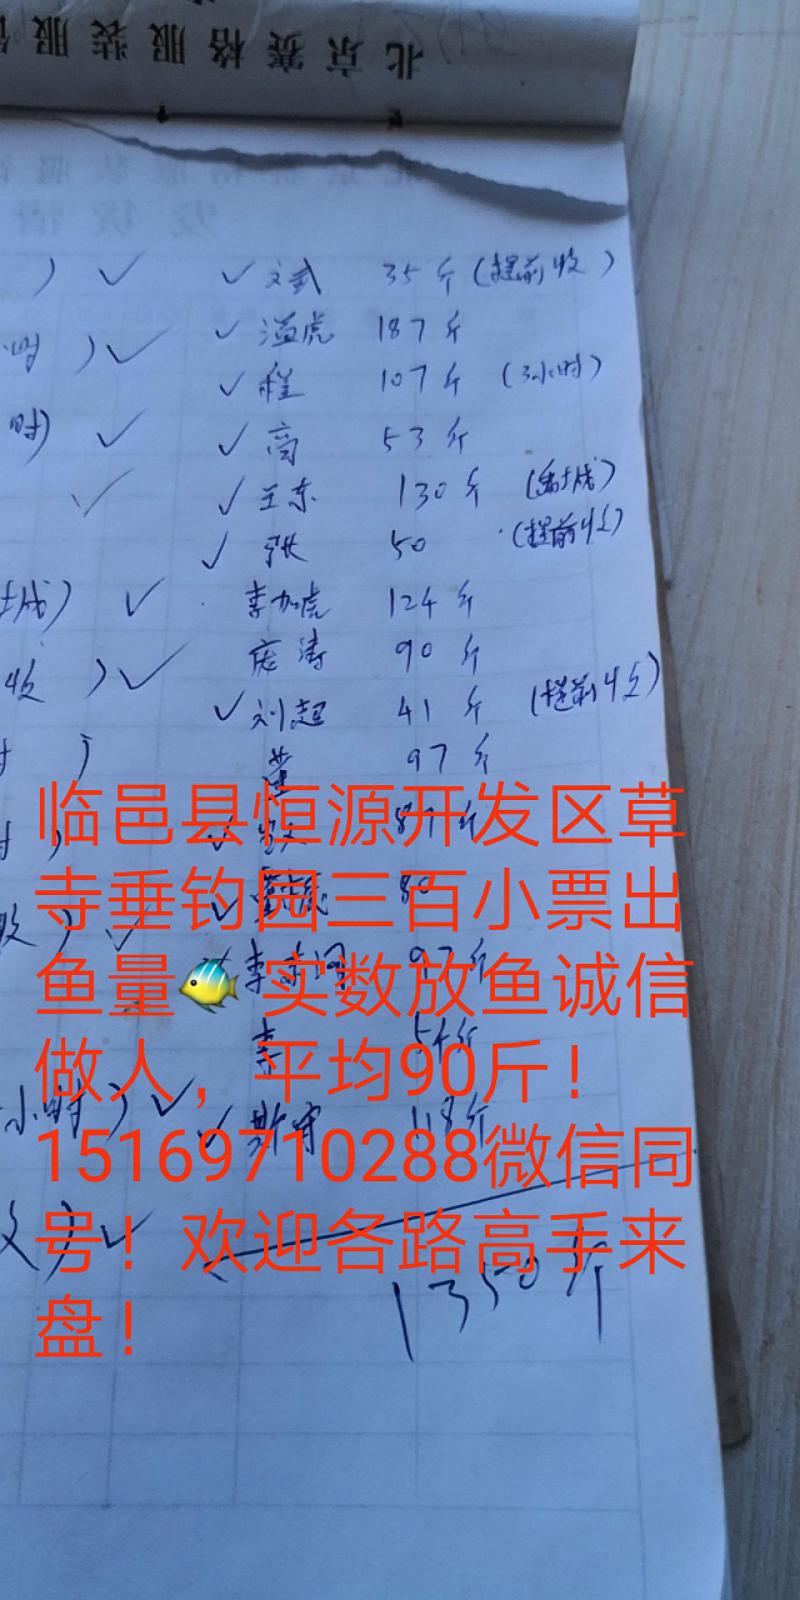 北京赛格服装服
文武 35斤 (提前收)
) 溢虎 187斤
时) 程 107斤 (3小时)
时) 高 53斤
王东 130斤
张 50 (提前收)
李加虎 124斤
收) 庞涛 90斤
刘超 41斤 (提前收)
97斤
临邑县恒源开发区草
寺垂钓园三百小票出
鱼量🐠实数放鱼诚信
做人，平均90斤！
15169710288微信同
号！欢迎各路高手来
盘！
87斤
80
97斤
李 54斤
小时) 118斤
1350斤